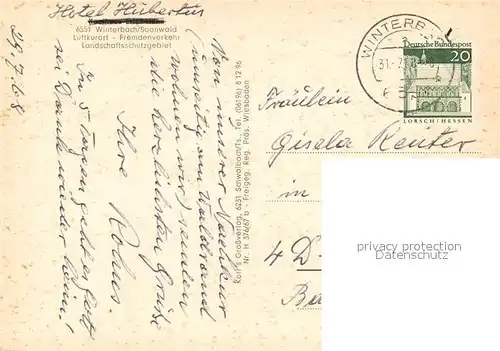 Hotel Hubertus
6551 Winterbach/Soonwald
Luftkurort - Fremdenverkehr
Landschaftsschutzgebiet
29.7.68
Von unserer Nachkur
(umseitig am Waldrand
wohnen wir) senden
die herzlichsten Grüße
Ihre Rohns.
In 5 Tagen geht es Gott
sei Dank wieder heim!
Rolf's Großverlag, 6231 Schwalbach/Ts., Tel. (06196) 8 12 96
Nr. H 376/67 b - Freigeg. Reg. Präs. Wiesbaden
WINTERB
31.-7.
Deutsche Bundespost
20
LORSCH/HESSEN
Fräulein
Gisela Reuter
in
4 D-
privacy protection
Ansichtskarten-Center
privacy protection